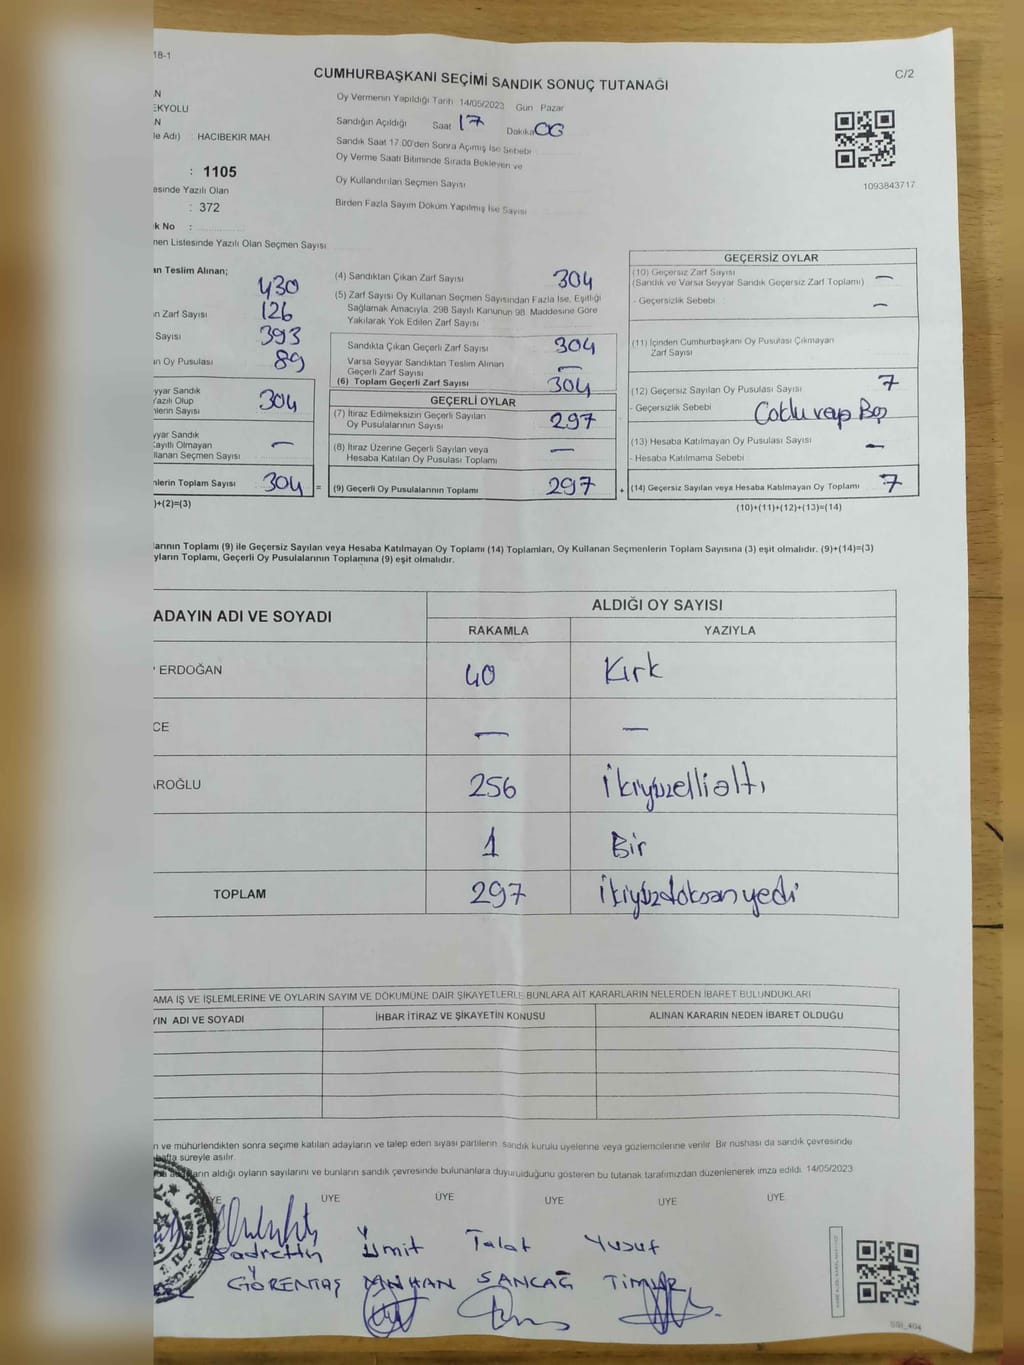 18-1
CUMHURBAŞKANI SEÇİMİ SANDIK SONUÇ TUTANAĞI
C/2
Oy Vermenin Yapıldığı Tarih 14/05/2023 Gün Pazar
EKYOLU
Sandığın Açıldığı Saat 17 Dakika 06
le Adı) : HACIBEKİR MAH
Sandık Saat 17:00'den Sonra Açımış İse Sebebi
Oy Verme Saati Bitiminde Sırada Bekleyen ve
Oy Kullandırılan Seçmen Sayısı
: 1105
1093843717
esinde Yazılı Olan
: 372
Birden Fazla Sayım Döküm Yapılmış İse Sayısı
k No :
men Listesinde Yazılı Olan Seçmen Sayısı
an Teslim Alınan;
430
n Zarf Sayısı 126
Sayısı 393
n Oy Pusulası 89
yyar Sandık
Yazılı Olup
nlerin Sayısı 304
yyar Sandık
Kayıtlı Olmayan
llanan Seçmen Sayısı —
nlerin Toplam Sayısı 304 =
)+(2)=(3)
(4) Sandıktan Çıkan Zarf Sayısı 304
(5) Zarf Sayısı Oy Kullanan Seçmen Sayısından Fazla İse, Eşitliği
Sağlamak Amacıyla, 298 Sayılı Kanunun 98. Maddesine Göre
Yakılarak Yok Edilen Zarf Sayısı
Sandıkta Çıkan Geçerli Zarf Sayısı 304
Varsa Seyyar Sandıktan Teslim Alınan
Geçerli Zarf Sayısı —
(6) Toplam Geçerli Zarf Sayısı 304
GEÇERLİ OYLAR
(7) İtiraz Edilmeksizin Geçerli Sayılan
Oy Pusulalarının Sayısı 297
(8) İtiraz Üzerine Geçerli Sayılan veya
Hesaba Katılan Oy Pusulası Toplamı —
(9) Geçerli Oy Pusulalarının Toplamı 297 +
GEÇERSİZ OYLAR
(10) Geçersiz Zarf Sayısı
(Sandık ve Varsa Seyyar Sandık Geçersiz Zarf Toplamı) —
- Geçersizlik Sebebi —
(11) İçinden Cumhurbaşkanı Oy Pusulası Çıkmayan
Zarf Sayısı
(12) Geçersiz Sayılan Oy Pusulası Sayısı 7
- Geçersizlik Sebebi
(13) Hesaba Katılmayan Oy Pusulası Sayısı —
- Hesaba Katılmama Sebebi
(14) Geçersiz Sayılan veya Hesaba Katılmayan Oy Toplamı 7
(10)+(11)+(12)+(13)=(14)
larının Toplamı (9) ile Geçersiz Sayılan veya Hesaba Katılmayan Oy Toplamı (14) Toplamları, Oy Kullanan Seçmenlerin Toplam Sayısına (3) eşit olmalıdır. (9)+(14)=(3)
yların Toplamı, Geçerli Oy Pusulalarının Toplamına (9) eşit olmalıdır.
ADAYIN ADI VE SOYADI ALDIĞI OY SAYISI
RAKAMLA YAZIYLA
ERDOĞAN 40 Kırk
CE — —
AROĞLU 256 İkiyüzellialtı
1 Bir
TOPLAM 297 İkiyüzdoksanyedi
AMA İŞ VE İŞLEMLERİNE VE OYLARIN SAYIM VE DÖKÜMÜNE DAİR ŞİKAYETLERLE BUNLARA AİT KARARLARIN NELERDEN İBARET BULUNDUKLARI
YIN ADI VE SOYADI İHBAR İTİRAZ VE ŞİKAYETİN KONUSU ALINAN KARARIN NEDEN İBARET OLDUĞU
n ve mühürlendikten sonra seçime katılan adayların ve talep eden siyasi partilerin sandık kurulu üyelerine veya gözlemcilerine verilir. Bir nüshası da sandık çevresinde
hafta süreyle asılır.
ların aldığı oyların sayılarını ve bunların sandık çevresinde bulunanlara duyurulduğunu gösteren bu tutanak tarafımızdan düzenlenerek imza edildi. 14/05/2023
YE ÜYE ÜYE ÜYE ÜYE ÜYE
Sadrettin Ümit Talat Yusuf
GÖRENTAŞ SANCAĞ TİMUR